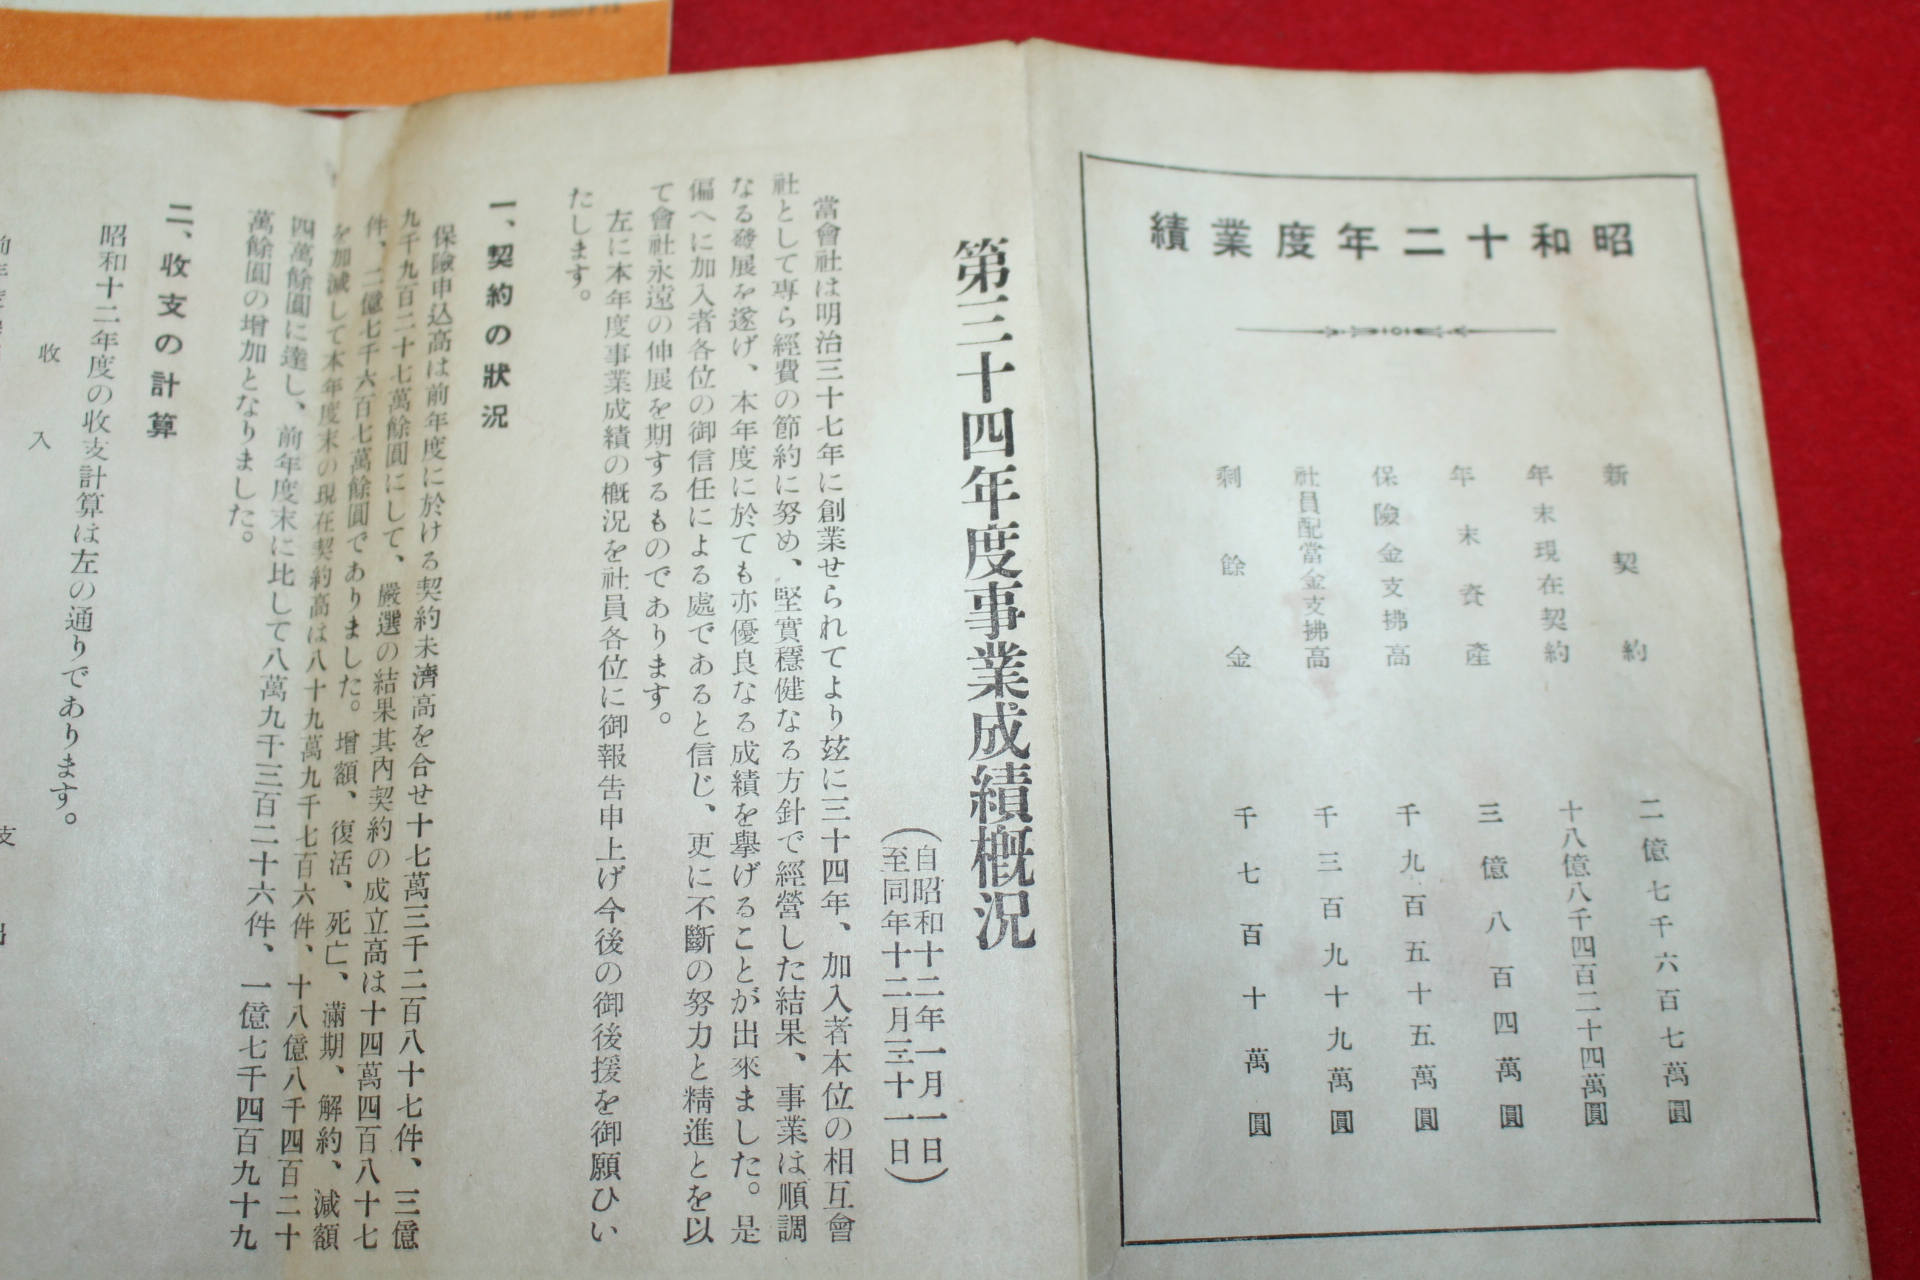 昭和十二年度業績
新契約 二億七千六百七萬圓
年末現在契約 十八億八千四百二十四萬圓
年末資產 三億八百四萬圓
保險金支拂高 千九百五十五萬圓
社員配當金支拂高 千三百九十九萬圓
剩餘金 千七百十萬圓
第三十四年度事業成績概況
(自昭和十二年一月一日
至同年十二月三十一日)
當會社は明治三十七年に創業せられてより玆に三十四年、加入者本位の相互會
社として專ら經費の節約に努め、堅實穩健なる方針で經營した結果、事業は順調
なる發展を遂げ、本年度に於ても亦優良なる成績を擧げることが出來ました。是
偏へに加入者各位の御信任による處であると信じ、更に不斷の努力と精進とを以
て會社永遠の伸展を期するものであります。
左に本年度事業成績の概況を社員各位に御報告申上げ今後の御後援を御願ひい
たします。
一、契約の狀況
保險申込高は前年度に於ける契約未濟高を合せ十七萬三千二百八十七件、三億
九千九百二十七萬餘圓にして、嚴選の結果其內契約の成立高は十四萬四百八十七
件、二億七千六百七萬餘圓でありました。增額、復活、死亡、滿期、解約、減額
を加減して本年度末の現在契約高は八十九萬九千七百六件、十八億八千四百二十
四萬餘圓に達し、前年度末に比して八萬九千三百二十六件、一億七千四百九十九
萬餘圓の增加となりました。
二、收支の計算
昭和十二年度の收支計算は左の通りであります。
收入
支出